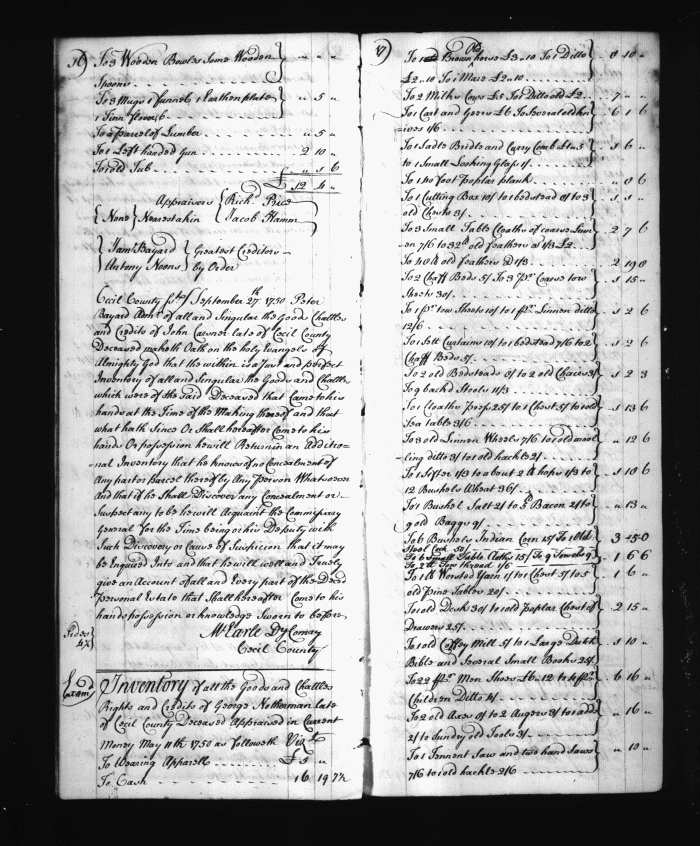 16) To 3 Wooden Bowles Some Wooden } " " "
Spoons
To 3 Muggs 1 funnel 1 Earthen plate } " 5 "
1 Tinn
To a parcel of Lumber " 5 "
To 1 Left handed Gun 2 10 "
To 1 old Tub " 1 6
£ 12 4 "
Appraisers { Richd Price
{ None } Nearest akin { Jacob Hamm
} Jams Bayard { Greatest Creditors
} Antony Noons { by Order
Cecil County September 27th 1750 Peter
Bayard Admr of all and Singular the Goods Chattles
and Credits of John late of Cecil County
Deceased maketh Oath on the holy Evangels of
Almighty God that the within is a Just and perfect
Inventory of all and Singular the Goods and Chattles
which were of the Said Deceased that Came to his
hands at the Time of the Making thereof and that
what hath Since Or Shall hereafter Come to his
hands Or possession he will Return in an Additio=
nal Inventory that he knows of no Concealment of
Any part or Parcel thereof by Any person Whatsoever
And that if he Shall Discover any Concealment or
Suspect any to be he will Acquaint the Commissary
General for the Time being or his Deputy with
Such Discovery or Cause of Suspicion that it may
be Enquired Into and that he will well and Truely
give an Account of all and Every part of the Deceds
personal Estate that Shall hereafter Come to his
hands possession or knowledge Sworn to before
M Earle Dy Comay
Cecil County
Inventory of all the Goods and Chattles
Rights and Credits of George late
of Cecil County Deceased Appraised in Current
Money May 11th 1750 as followeth Vizt
To Wearing Apparell £ 5 "
To Cash 16 19 7½
17) To 1 Old Brown horse £3 " 10 To 1 Ditto } 8 10 "
£2 " 10 To 1 Mare £2 " 10
To 2 Milk Cows £5 To 1 Ditto old £2 7 "
To 1 Cart and Geers £6 To Several old kn } 6 1 6
=ives 1/6
To 1 Sadle Bridle and Carry Comb £1 " 5 } 1 6 "
to 1 Small Looking Glass 1/
To 1 10 foot Poplar plank " " 6
To 1 Cutting Box 10/ to 1 bedstead 8/ to 3
old Chests 3/
To 3 Small Table Cloaths of coarse Linn } 2 7 6
en 7/6 to 32lb old feathers at 1/3 £2
To 40 lb old feathers @ 1/3 2 19 0
To 2 Chaff Beds 5/ To 3 pr Coarse tow } 1 15 "
Sheets 30/
To 1 pr tow Sheets 10/ to 1 pr Linnen ditto } 1 2 6
12/6
To 1 Sett Curtains 10/ to 1 bedstead 7/6 to 2 } 1 2 6
Chaff Beds 5/
To 2 old Bedsteads 8/ to 2 old Chairs 3/ } 1 2 3
To 9 backd Stools 11/3
To 1 Cloaths Press 25/ to 1 Chest 5/ to old } 1 13 6
Tea table 3/6
To 3 old Linnen Wheels 7/6 to 1 old wool } " 12 6
=ling ditto 3/ to 1 old hackle 2/
To 1 Sifter 1/3 to about 2 lb hops 1/3 to } 1 18 6
12 Bushels Wheat 36/
To 1 Bushel Salt 2/ to 5lb Bacon 2/ to } " 13 "
9 old Baggs 9/
To 6 Bushels Indian Corn 15/ To 1 Old 3 45 0
To 6 Small Table Cloths 15/ To 9 Towels 9/ } 1 6 6
To 2 lb Tow thread 1/6
To 1 lb Worsted Yarn 1/ to 1 Chest 5/ to 5 } 1 6 "
old Pine Tables 20/
To 1 old Desk 30/ to 1 old Poplar Chest of } 2 15 "
Drawers 25/
To 1 old Coffey Mill 5/ to 1 Large Dutch } 1 10 "
Bible and Several Small Books 25/
To 22 pr Men Shoes £6 " 12 to 4 pr } 6 16 "
Children Ditto 4/
To 2 old Axes 8/ to 2 Augers 3/ to 1 adds } " 16 "
2/ to Sundry old Tools 3/
To 1 Tennent Saw and two hand Saws } " 10 "
7/6 to 1 old hackle 2/6